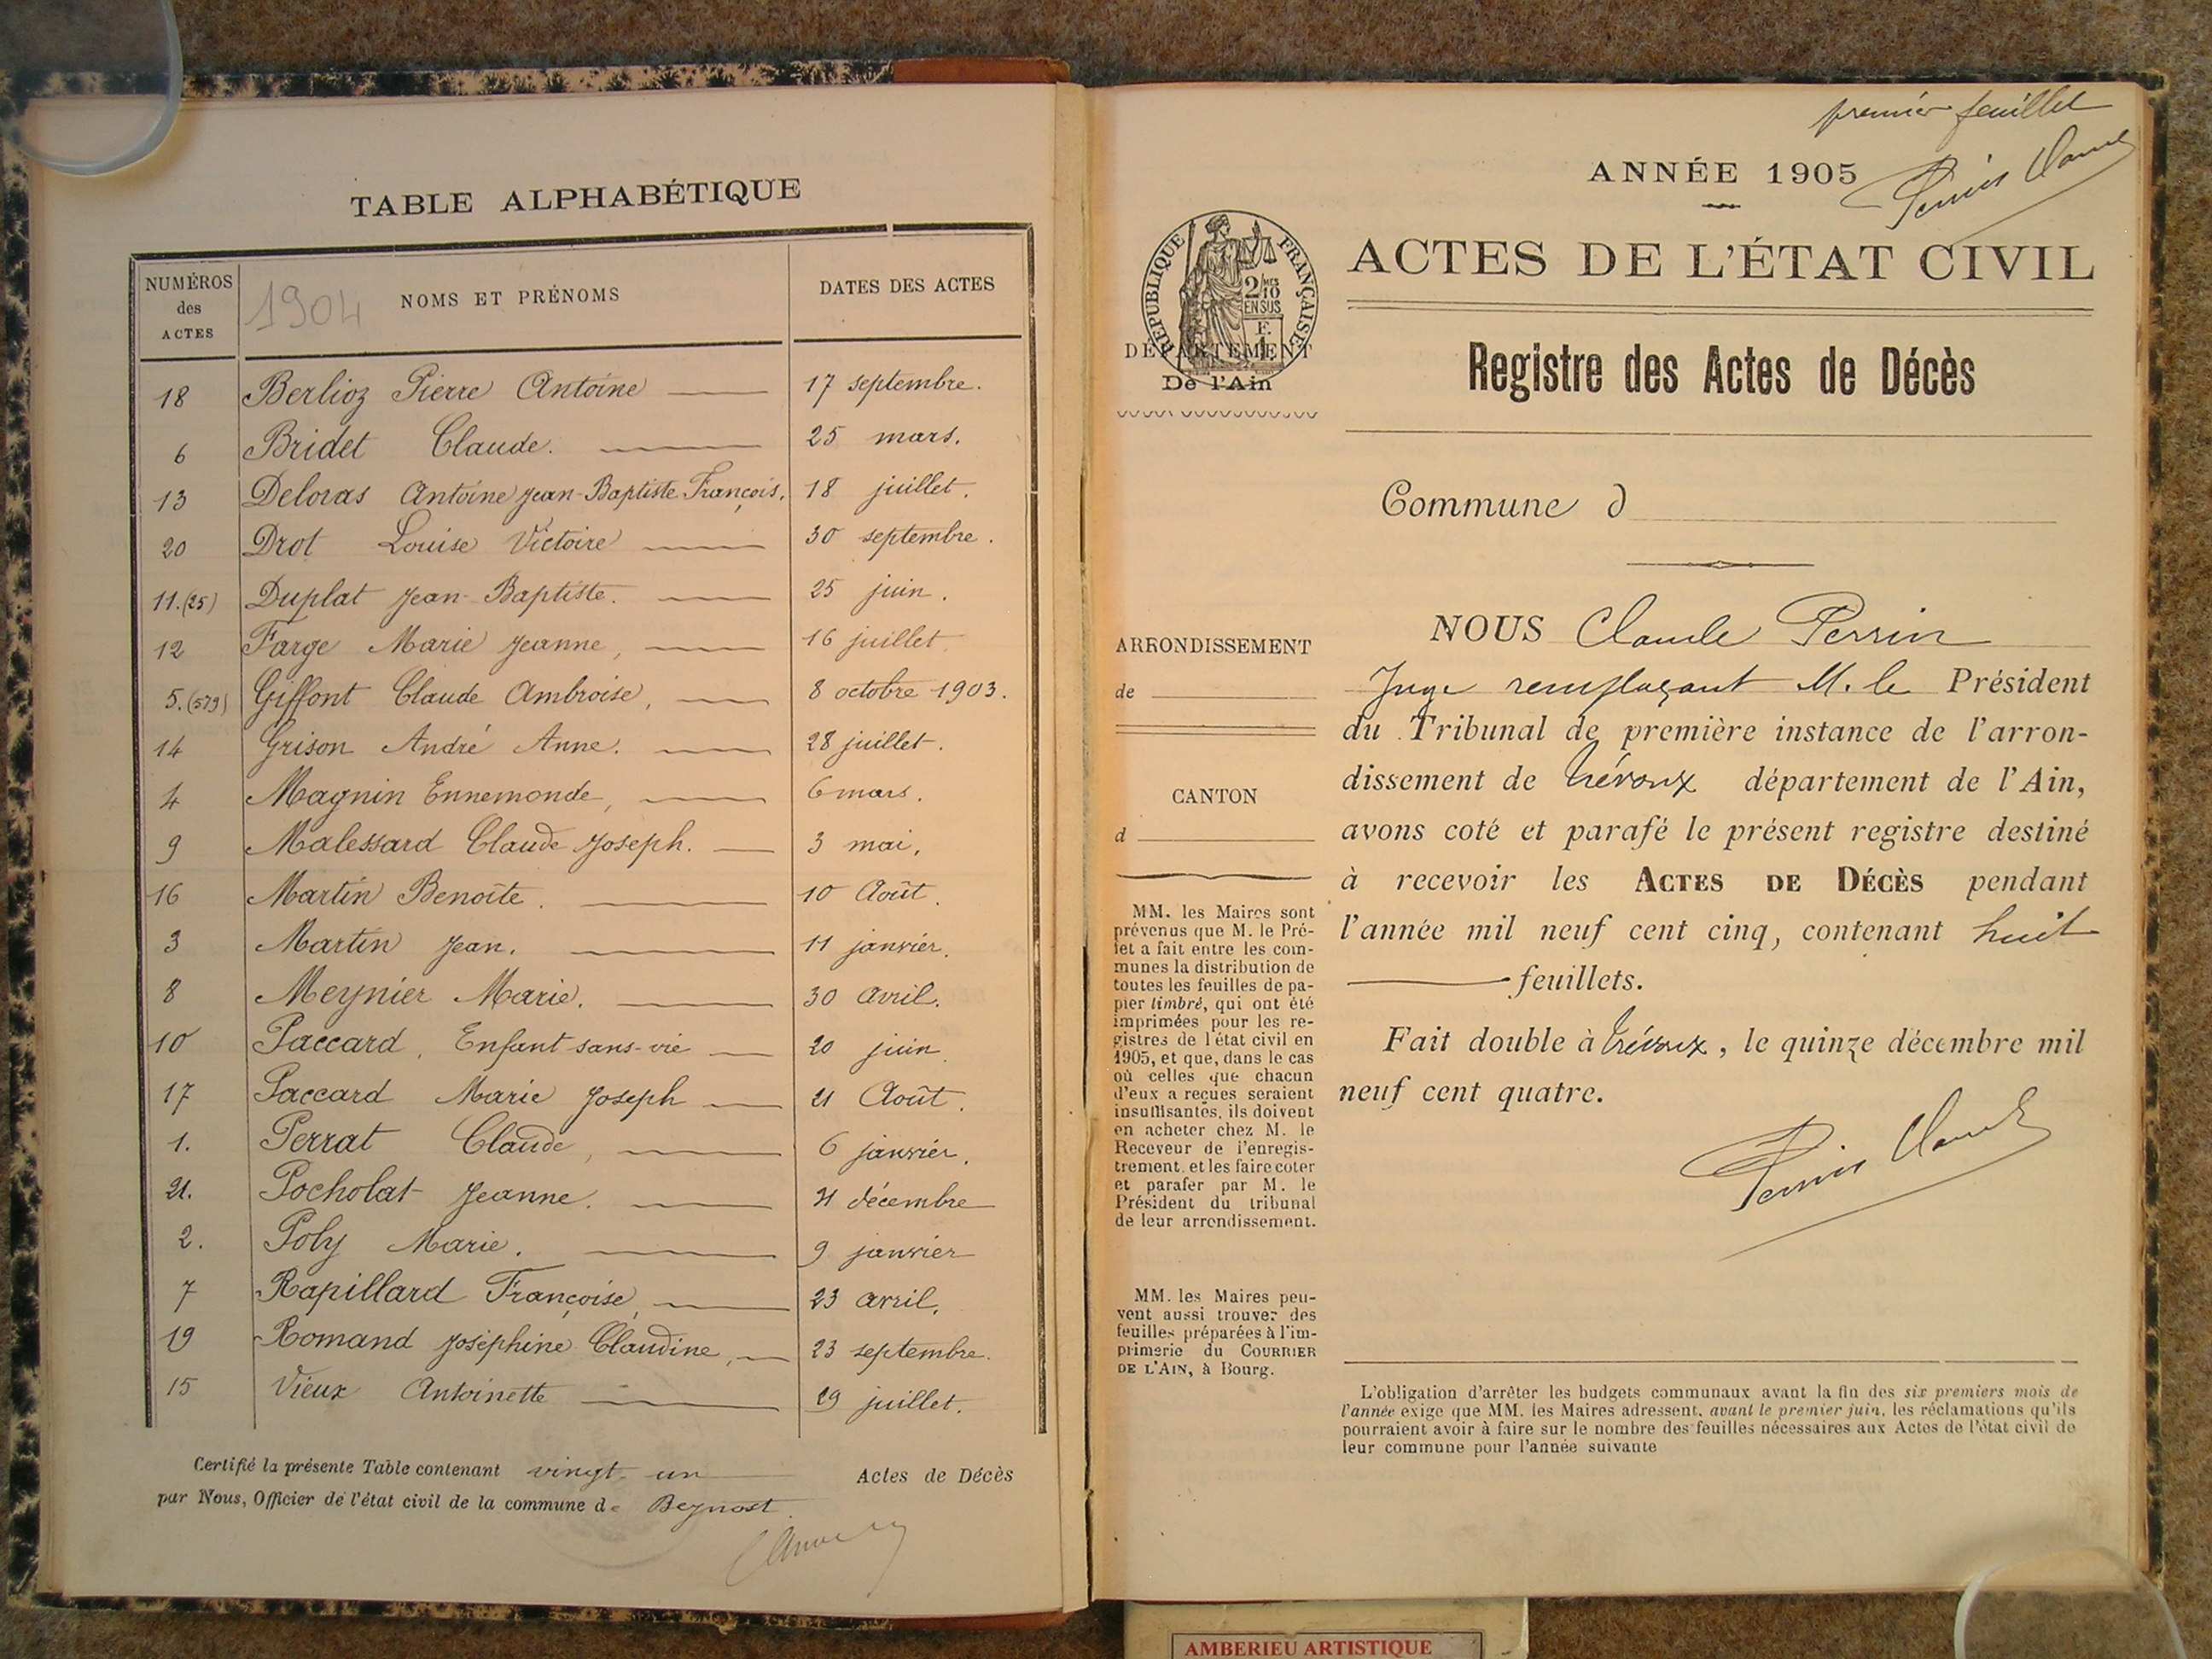 TABLE ALPHABÉTIQUE
NUMÉROS des ACTES
1904 NOMS ET PRÉNOMS
DATES DES ACTES
18 Berlioz Pierre Antoine 17 septembre.
6 Bridet Claude. 25 mars.
13 Deloras Antoine Jean-Baptiste François. 18 juillet.
20 Drot Louise Victoire 30 septembre.
11.(25) Duplat Jean-Baptiste. 25 juin.
12 Farge Marie Jeanne, 16 juillet.
5.(579) Giffont Claude Ambroise, 8 octobre 1903.
14 Grison André Anne. 28 juillet.
4 Magnin Ennemonde, 6 mars.
9 Malessard Claude Joseph. 3 mai.
16 Martin Benoîte. 10 Août.
3 Martin Jean. 11 janvier.
8 Meynier Marie. 30 avril.
10 Paccard, Enfant sans-vie 20 juin.
17 Paccard Marie Joseph 21 Août.
1. Perrat Claude, 6 janvier.
21. Pocholat Jeanne. 31 décembre
2. Poly Marie. 9 janvier
7 Rapillard Françoise, 23 avril.
19 Romand Joséphine Claudine, 23 septembre.
15 Vieux Antoinette 29 juillet.
Certifié la présente Table contenant vingt-un Actes de Décès
par Nous, Officier de l'état civil de la commune de Beynost.
premier feuillet
Perrin Claude
ANNÉE 1905
RÉPUBLIQUE FRANÇAISE
2/10 EN SUS
F.
DÉPARTEMENT
De l'Ain
ACTES DE L'ÉTAT CIVIL
Registre des Actes de Décès
Commune d
ARRONDISSEMENT
de
CANTON
d
MM. les Maires sont
prévenus que M. le Pré-
fet a fait entre les com-
munes la distribution de
toutes les feuilles de pa-
pier timbré, qui ont été
imprimées pour les re-
gistres de l'état civil en
1905, et que, dans le cas
où celles que chacun
d'eux a reçues seraient
insuffisantes, ils doivent
en acheter chez M. le
Receveur de l'enregis-
trement, et les faire coter
et parafer par M. le
Président du tribunal
de leur arrondissement.
MM. les Maires peu-
vent aussi trouver des
feuilles préparées à l'im-
primerie du COURRIER
DE L'AIN, à Bourg.
NOUS Claude Perrin
Juge remplaçant M. le Président
du Tribunal de première instance de l'arron-
dissement de Trévoux département de l'Ain,
avons coté et parafé le présent registre destiné
à recevoir les ACTES DE DÉCÈS pendant
l'année mil neuf cent cinq, contenant huit
feuillets.
Fait double à Trévoux, le quinze décembre mil
neuf cent quatre.
Perrin Claude
L'obligation d'arrêter les budgets communaux avant la fin des six premiers mois de
l'année exige que MM. les Maires adressent, avant le premier juin, les réclamations qu'ils
pourraient avoir à faire sur le nombre des feuilles nécessaires aux Actes de l'état civil de
leur commune pour l'année suivante
AMBERIEU ARTISTIQUE